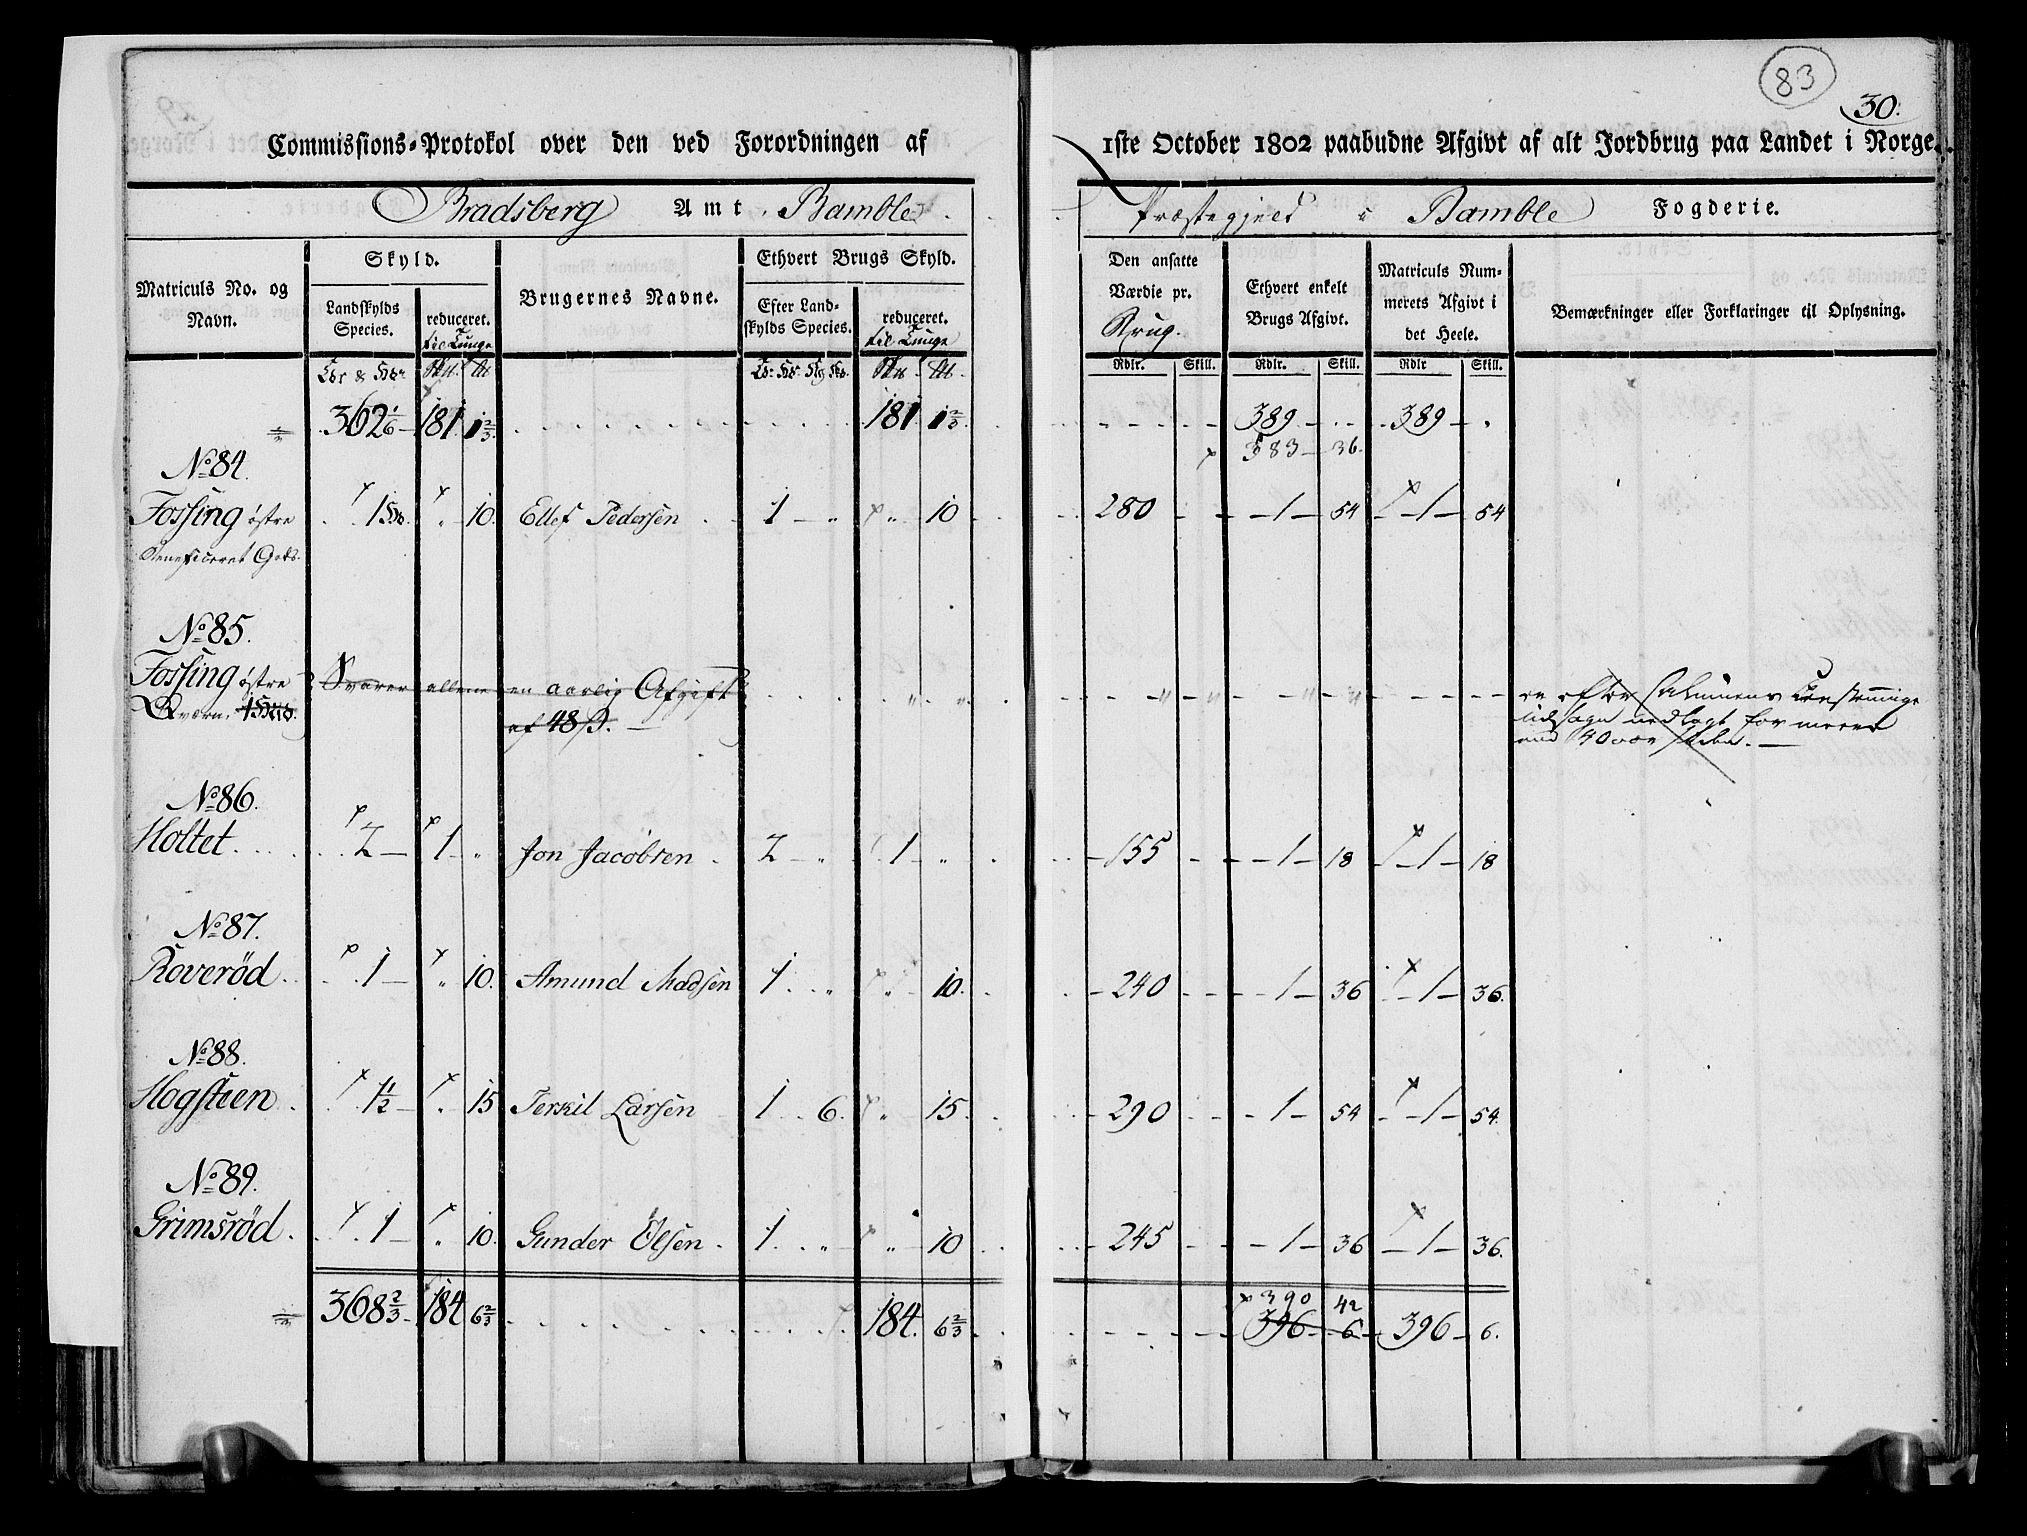 83
30.
Commissions-Protokol over den ved Forordningen af 1ste October 1802 paabudne Afgivt af alt Jordbrug paa Landet i Norge.
Bradsberg Amt. Bamble Præstegjeld i Bamble Fogderie.
Matriculs No. og Navn.
Skyld.
Landskylds Species.
reduceret. til Tunge
Brugernes Navne.
Ethvert Brugs Skyld.
Efter Landskylds Species.
reduceret. til Tunge
Den ansatte Værdie pr. Krug.
Ethvert enkelt Brugs Afgivt.
Matriculs Nummerets Afgivt i det Heele.
Bemærkninger eller Forklaringer til Oplysning.
Rdlr. Skill. Rdlr. Skill. Rdlr Skill.
362 1/6 181 1 2/3 181 1 2/3 389 389
583 36.
No 84.
Fossing østre 1 10. Ellef Pedersen 1 " " 10 280 1 54 1 54
Beneficeret Gods.
No 85.
Fossing østre Svarer allene en aarlig Afgift " " " " " " er efter Almuens Eenstemmige
Qværn. af 48 ß. udsagn nedlagt for meere
end 40 aar siden.
No 86.
Holtet. 2 1 " Jon Jacobsen 2 " 1 " 155 1 18 1 18
No 87.
Roverød 1 " 10. Amund Madsen 1 " " 10. 240 1 36 1 36.
No 88.
Hogsteen 1 1/2 " 15 Terkil Larsen 1 6. " 15 290 1 54 1 54.
No 89.
Grimsrød 1 " 10. Gunder Olsen 1 " " 10 245 1 36 1 36.
390 42
368 2/3 184 6 2/3 184. 6 2/3 396 6 396 6.